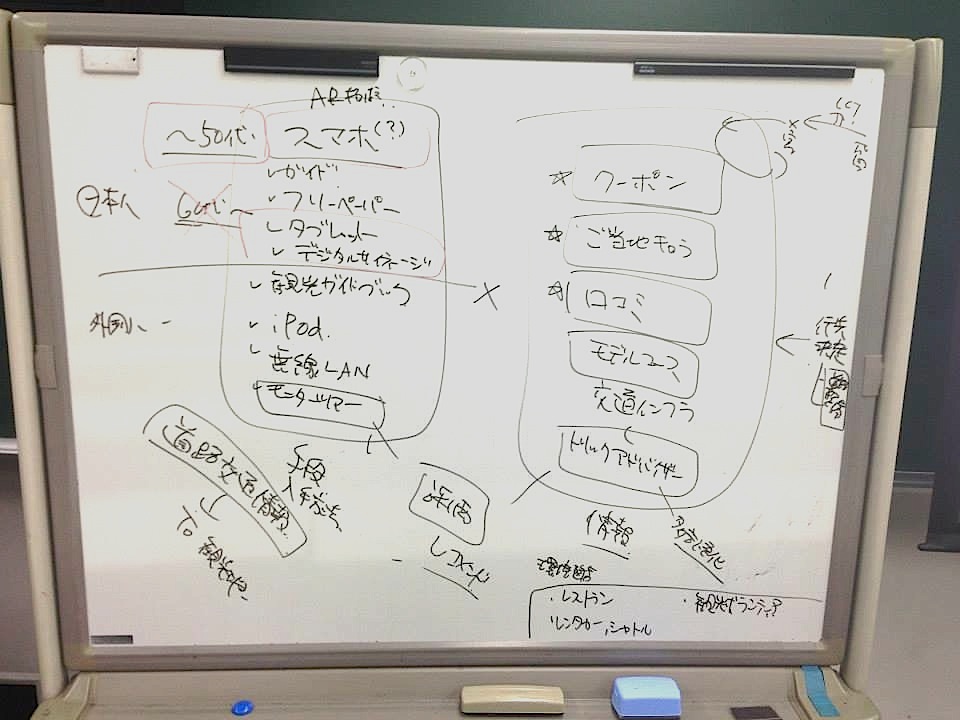 〜50代
スマホ(?)
日本人
60代〜
ガイド
フリーペーパー
タブレット
デジタルサイネージ
観光ガイドブック
外国人
iPod.
無線LAN
モニターツアー
道路交通情報
To 観光地
手段
クーポン
ご当地キャラ
口コミ
モデルコース
交通インフラ
トリックアドバイザー
情報
評価
レコメンド
多言語化
・レストラン
・レンタカー,シャトル
・観光ボランティア